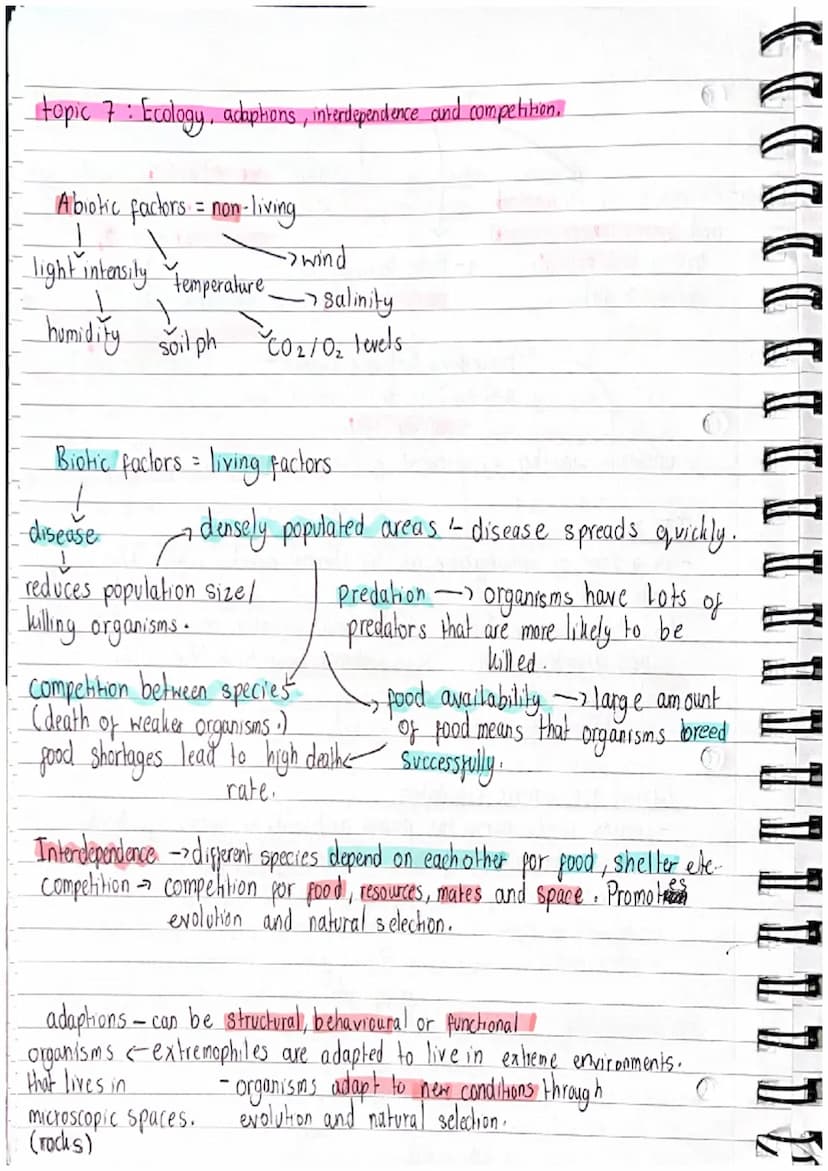 topic 7 : Ecology, adaptions, interdependence and competition.
Abiotic factors = non-living
→ wind
light intensity
temperature
→ salinity
humidity
soil ph
CO2/O2 levels
Biotic factors = living factors
disease
→ densely populated areas - disease spreads quickly.
reduces population size/
killing organisms.
Predation → organisms have lots of
predators that are more likely to be
killed.
competition between species
(death of weaker organisms.)
food shortages lead to high death
rate.
food availability → large amount
of food means that organisms breed
successfully.
Interdependence → different species depend on each other for food, shelter etc.
competition → competition for food, resources, mates and space. Promotes
evolution and natural selection.
adaptions – can be structural, behavioural or functional
organisms ← extremophiles are adapted to live in extreme environments.
that lives in
microscopic spaces.
(rocks)
- organisms adapt to new conditions through
evolution and natural selection.